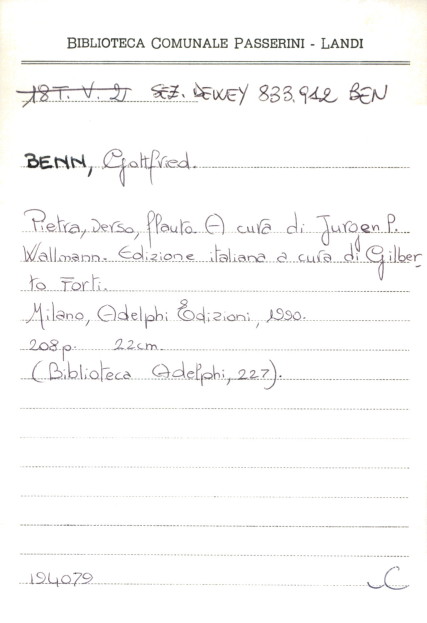 BIBLIOTECA COMUNALE PASSERINI - LANDI
18 T. V. 21 SEZ. DEWEY 833.912 BEN
BENN, Gottfried.
Pietra, verso, flauto. A cura di Jurgen P.
Wallmann. Edizione italiana a cura di Gilber-
to Forti.
Milano, Adelphi Edizioni, 1990.
208 p. 22 cm.
(Biblioteca Adelphi, 227).
194079